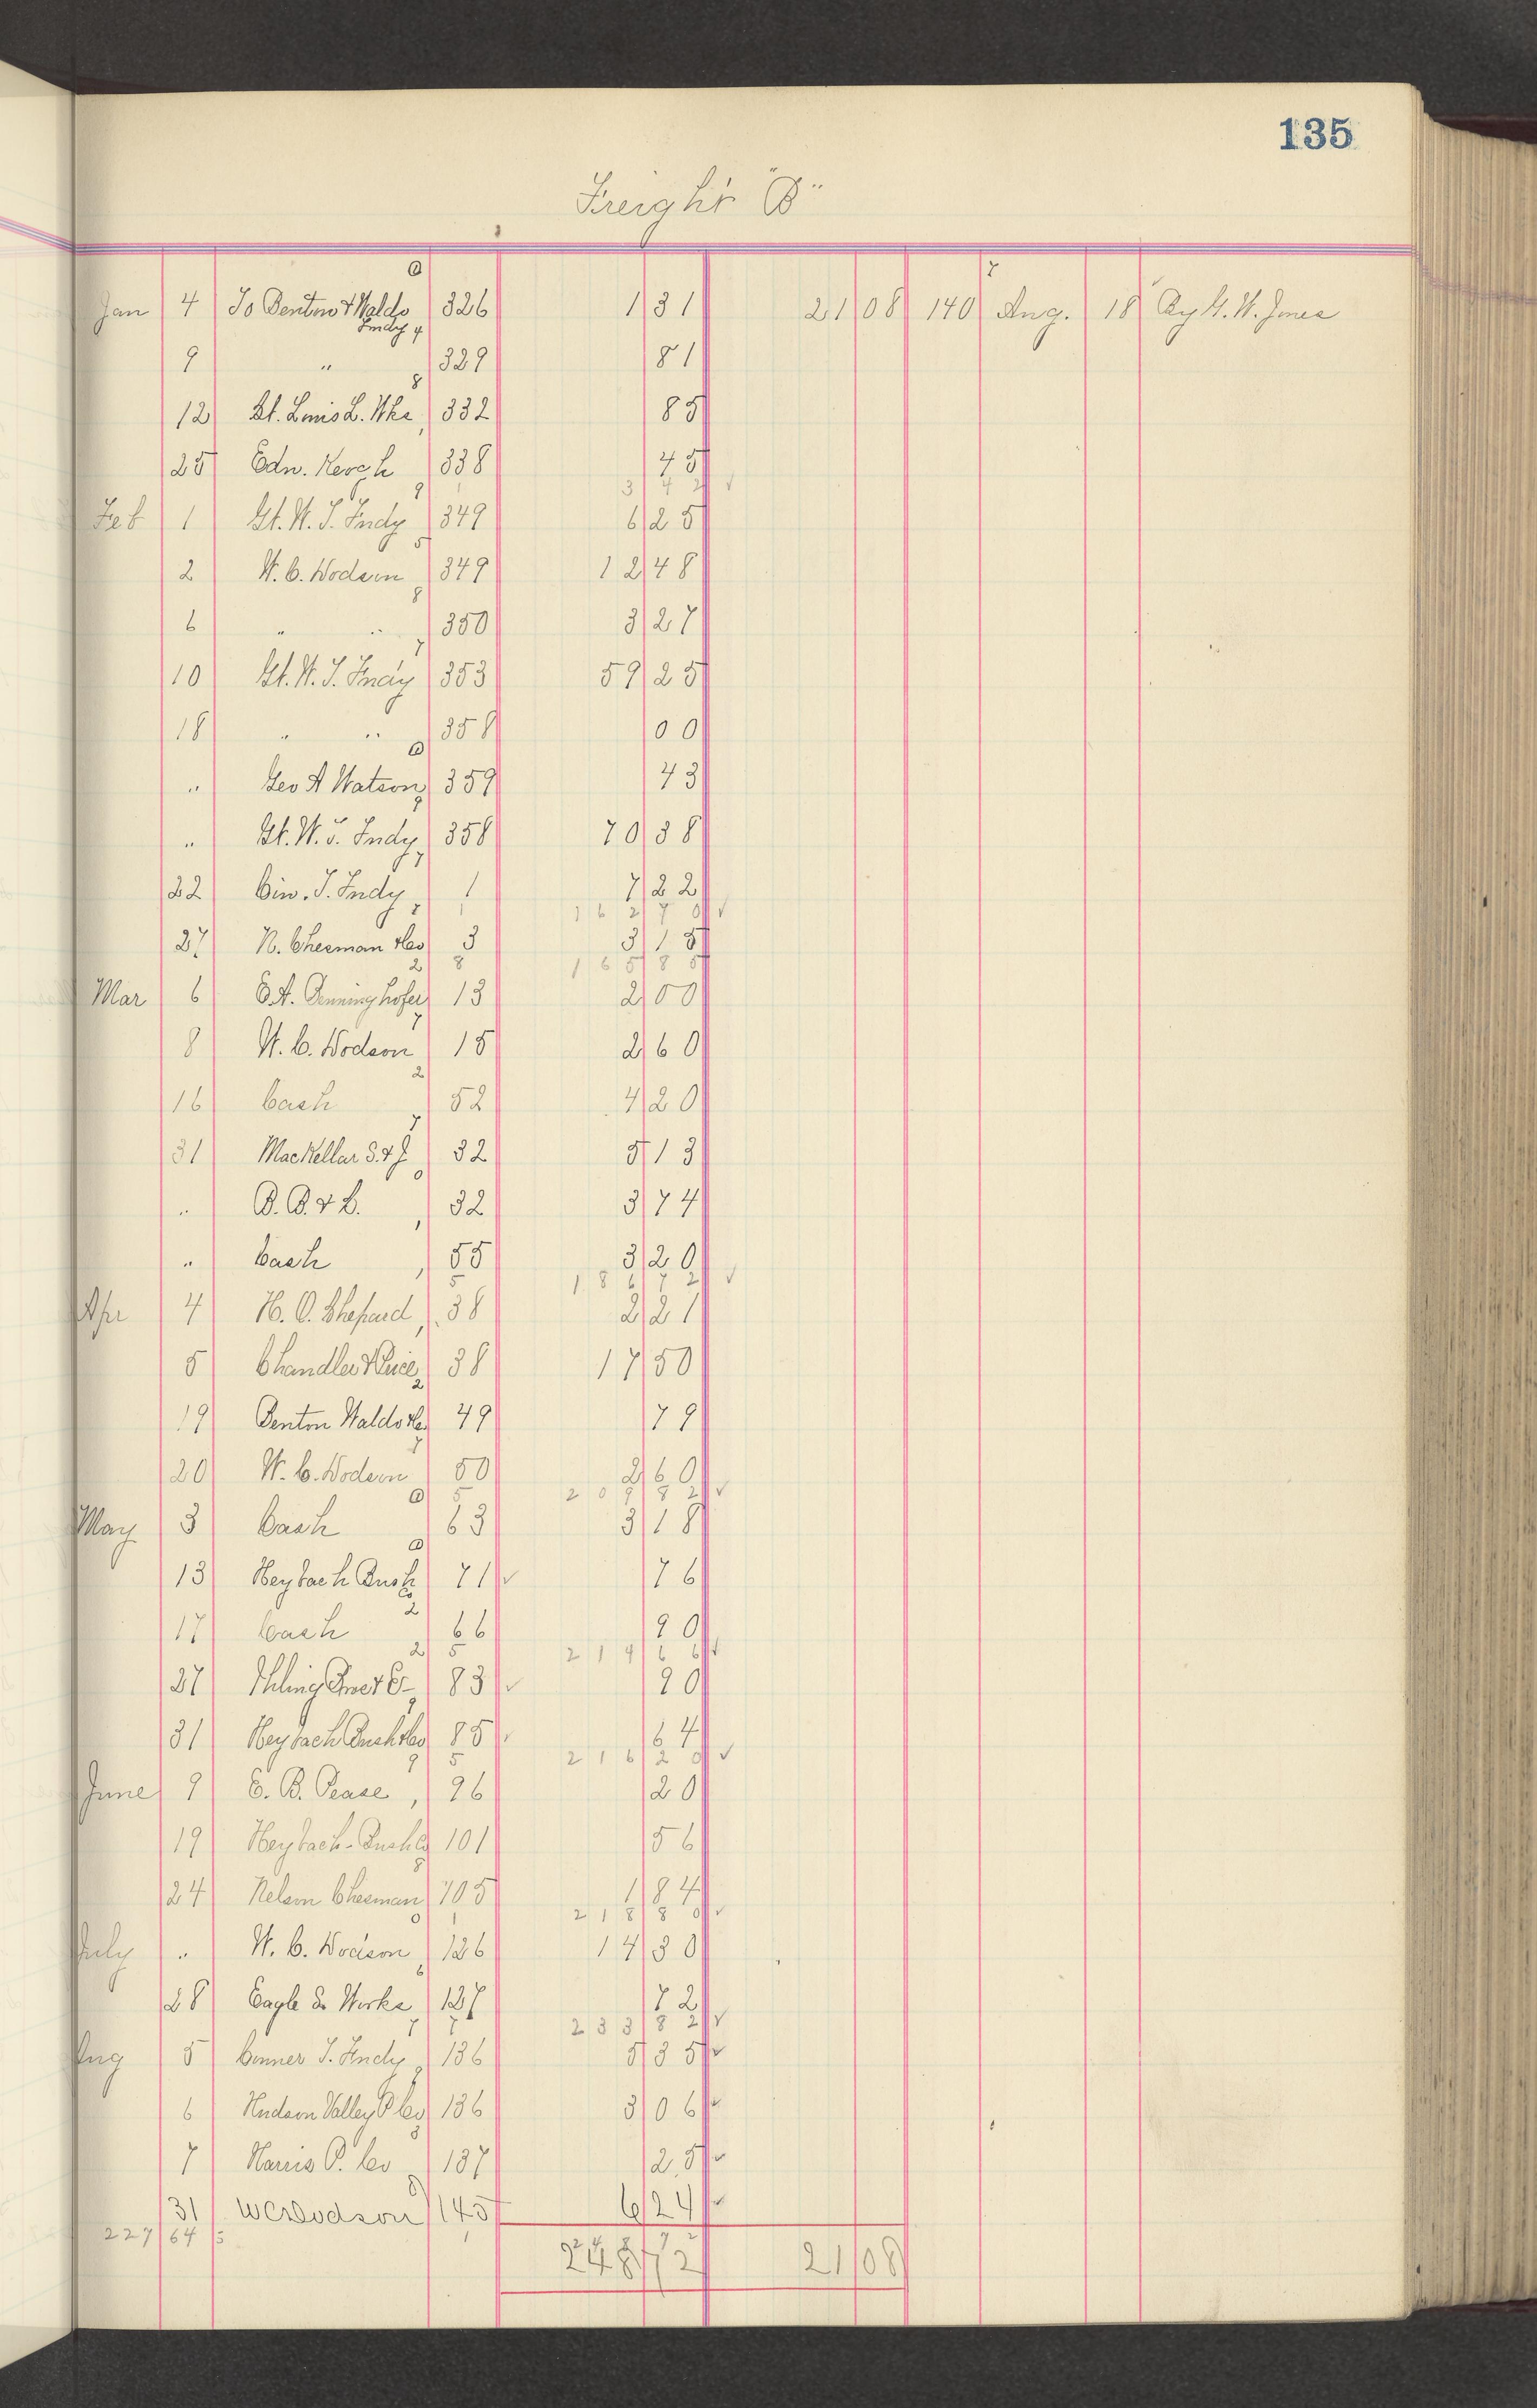 135
Freight "B"
Jan 4 To Benton & Waldo Indy 326 1 31 21 08 140 Aug. 18 By H. W. Jones
9 " 329 81
12 St. Louis L. Wks 332 85
25 Edw. Kerch 338 45
3 42
Feb 1 St. W. T. Indy 349 6 25
2 W. C. Hodson 349 12 48
6 " " 350 3 27
10 St. W. T. Indy 353 59 25
18 " " 358 00
" Geo A Watson 359 43
" St. W. T. Indy 358 70 38
22 Cin. T. Indy 1 7 22
162 70
27 N. Chesman &Co 3 3 15
165 85
Mar 6 13 2 00
8 W. C. Hodson 15 2 60
16 Cash 52 4 20
31 MacKellar S. & J. 32 5 13
" B. B. & C. 32 3 74
" Cash 55 3 20
186 72
Apr 4 H. O. Shepard 38 2 21
5 Chandler & Price 38 17 50
19 Benton Waldo &Co 49 79
20 W. C. Hodson 50 2 60
209 82
May 3 Cash 63 3 18
13 Heybach Bush Co 71 76
17 Cash 66 90
214 66
27 Ihling Bros & Co 83 90
31 Heybach Bush &Co 85 64
216 20
June 9 E. B. Pease 96 20
19 Heybach-Bush Co 101 56
24 Nelson Chesman 105 1 84
218 80
July " W. C. Hodson 126 14 30
28 Eagle S. Works 127 72
233 82
Aug 5 Conner T. Indy 136 5 35
6 Hudson Valley P Co 136 3 06
7 Harris P. Co 137 2 5
31 W C Hodson 145 6 24
227 64
248 72 21 08